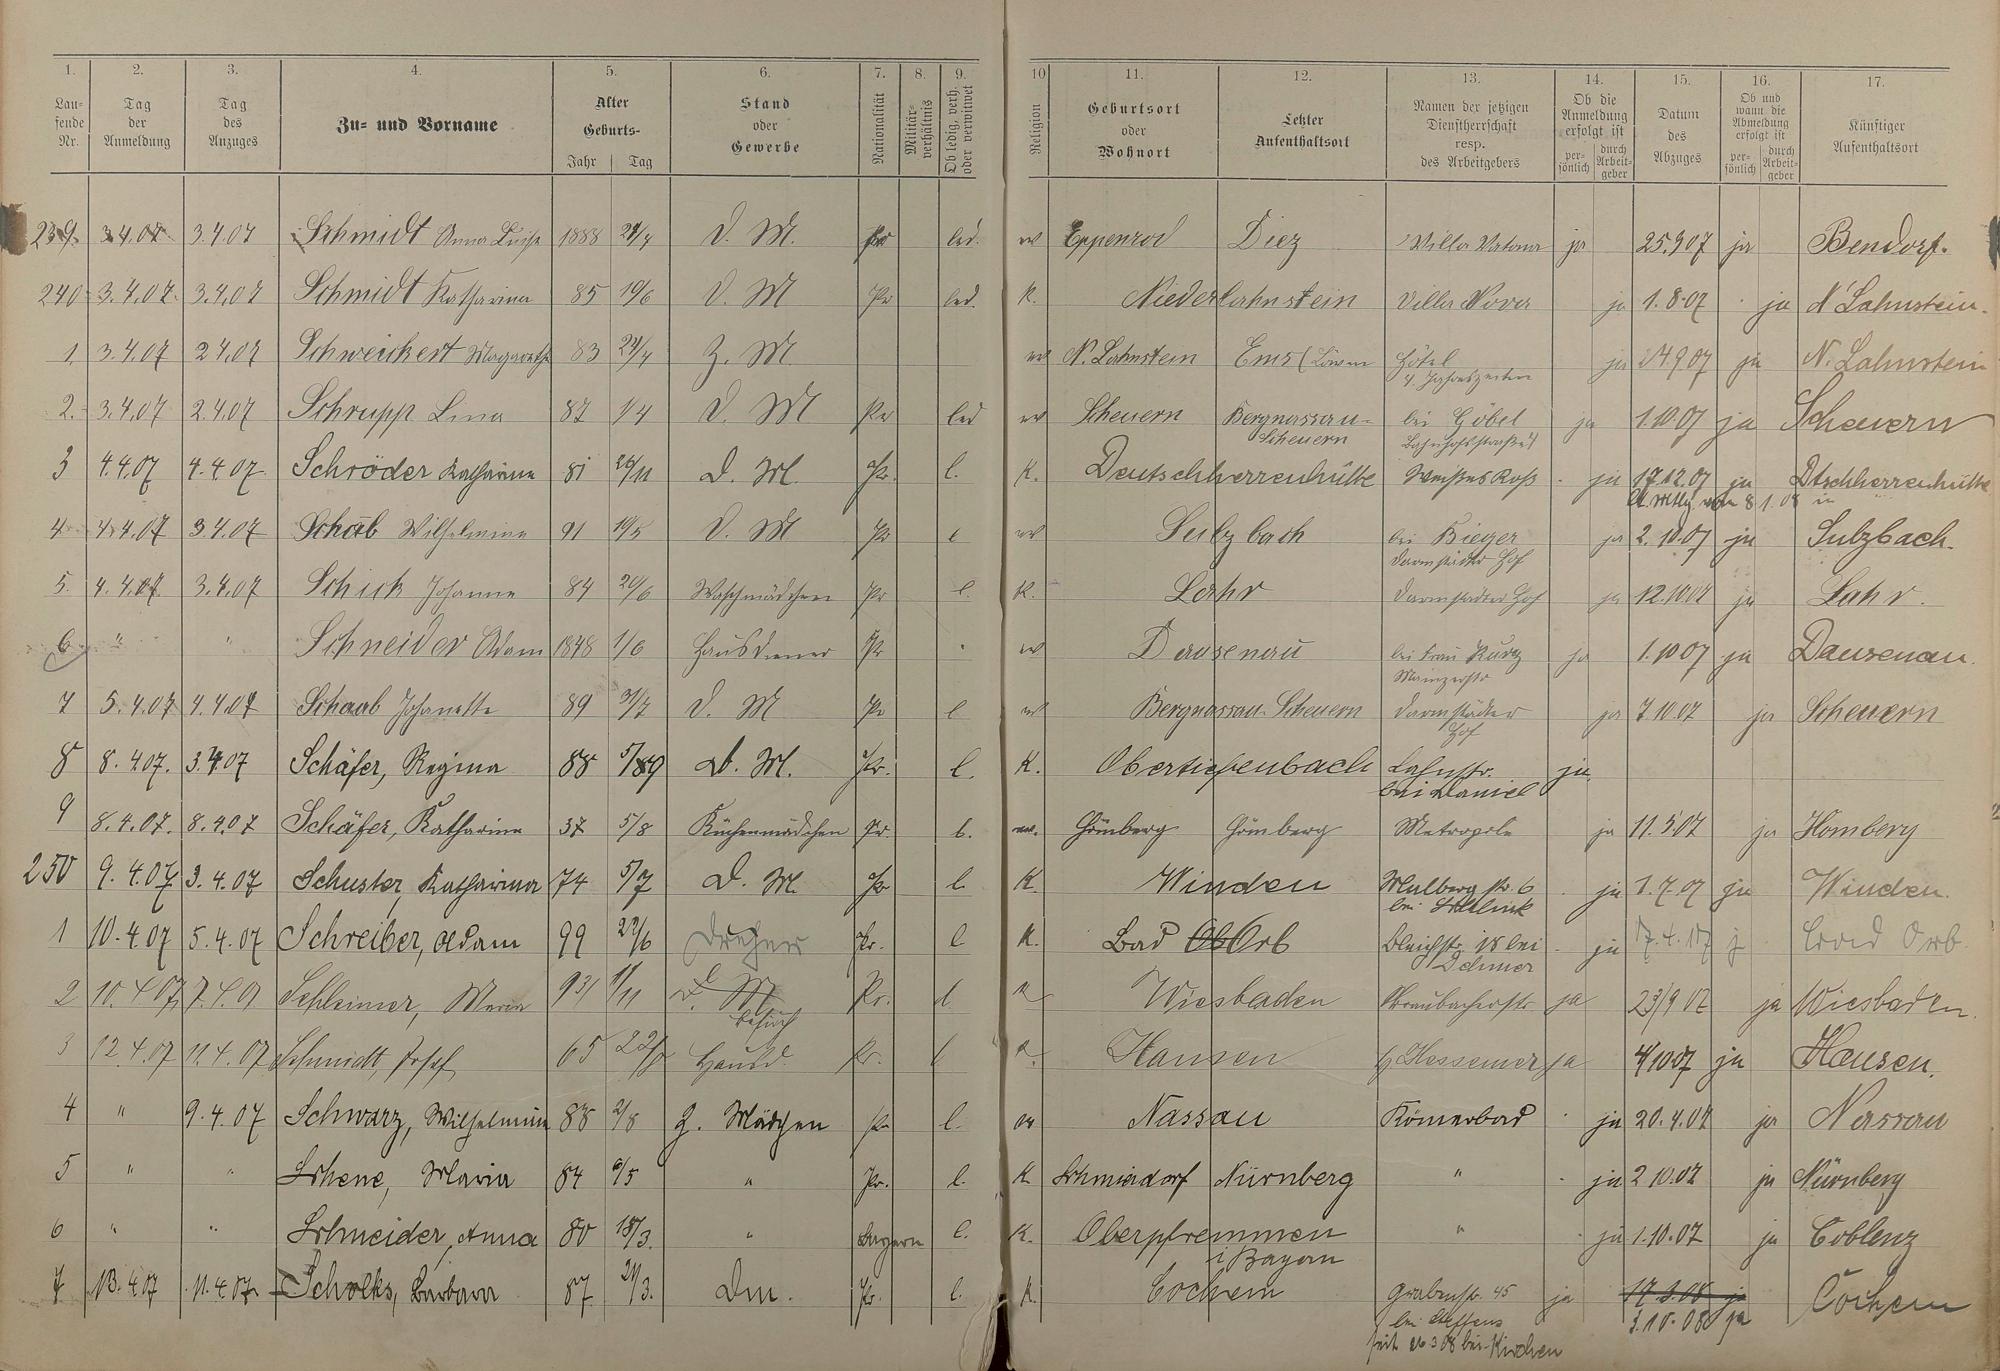 1. 2. 3. 4. 5. 6. 7. 8. 9. 10 11. 12. 13. 14. 15. 16. 17.
Lau-
fende
Nr.
Tag
der
Anmeldung
Tag
des
Anzuges
Zu- und Vorname
Alter
Geburts-
Jahr Tag
Stand
oder
Gewerbe
Nationalität
Militär-
verhältnis
Ob ledig, verh.
oder verwitwet
Religion
Geburtsort
oder
Wohnort
Letzter
Aufenthaltsort
Namen der jetzigen
Dienstherrschaft
resp.
des Arbeitgebers
Ob die
Anmeldung
erfolgt ist
per-
sönlich
durch
Arbeit-
geber
Datum
des
Abzuges
Ob und
wann die
Abmeldung
erfolgt ist
per-
sönlich
durch
Arbeit-
geber
Künftiger
Aufenthaltsort
239. 3.4.07 3.4.07 Schmidt Anna Luise 1888 D. M. Pr led. Eppenrod Diez Villa ja 25.9.07 ja Bendorf.
240 3.4.07. 3.4.07 Schmidt Katharina 85 19/6 D. M Pr led. K. Niederlahnstein Villa Nova ja 1.8.07 ja N'Lahnstein.
1 3.4.07 2.4.07 Schweickert Magarethe 83 Z. M. N. Lahnstein Ems (Löwen Hôtel ja 24.9.07 ja N. Lahnstein
4 Jahreszeiten
2. 3.4.07 2.4.07 Schrupp Lina 87 1/4 D. M Pr led Scheuern Bergnassau- bei Göbel ja 1.10.07 ja Scheuern
Scheuern Bahnhofstraße
3 4.4.07 4.4.07 Schröder Katharina 81 D. M. Pr. l. K. Deutschherrenhütte Weißes Roß ja 17.12.07 ja Dtschherrenhütte
8.1.08
4 4.4.07 3.4.07 Schäb Wilhelmine 91 19/5 D. M Pr l Sulzbach bei Bieger ja 2.10.07 ja Sulzbach.
Darmstädter Hof
5. 4.4.07. 3.4.07 Schick Johanna 84 20/6 Waschmädchen Pr l. K. Lahr Darmstädter Hof ja 12.10.07 ja Lahr.
6 " " Schneider Adam 1848 1/6 Hausdiener Pr " Dausenau bei Frau Kurz ja 1.10.07 ja Dausenau.
Mainzerstr
7 5.4.07 4.4.07 Schaab Johanette 89 31/7 D. M Pr l Bergnassau-Scheuern Darmstädter ja 7.10.07 ja Scheuern
Hof
8 8.4.07. 3.4.07 Schäfer, Regina 88 D. M. Pr. l. K. Obertiefenbach Lahnstr. ja
bei Daniel
9 8.4.07. 8.4.07 Schäfer, Katharina 37 5/8 Küchenmädchen Pr. l. Hömberg Hömberg Metropole ja 11.5.07 ja Homberg
250 9.4.07 3.4.07 Schuster, Katharina 74 5/7 D. M Pr l. K. Winden Malbergstr. 6 ja 1.7.07 ja Winden.
bei
1 10.4.07 5.4.07 Schreiber, Adam 99 22/6 Dreher Pr. l K. Bad Orb Bleichstr. 18 bei ja 17.4.07 j Bad Orb.
2 10.4.07 7.4.07 Schleimer, Maria 93 1/11 D. M Pr. l Wiesbaden Braubacherstr ja 23/9 07 ja Wiesbaden.
Besuch
3 12.4.07 11.4.07 Schmidt, Josef 65 Hausd. Pr. l Hausen Hessemer ja 4/10 07 ja Hausen.
4 " 9.4.07 Schwarz, Wilhelmine 88 2/8 Z. Mädchen Pr l. Nassau Römerbad ja 20.4.07 ja Nassau
5 " " Schene, Maria 84 6/5 " Pr. l. K Nürnberg " ja 2.10.07 ja Nürnberg
6 " " Schneider, Anna 80 18/3. " Bayern l. K. Oberpfremmen " ja 1.10.07 ja Coblenz
i/Bayern
7 13.4.07 11.4.07 Scholks, Barbara 87 Dm. Pr. l. K. Cochem Grabenstr. 45 ja 17.3.08 ja Cochem
bei Steffens 3.10.08 ja
seit 26.3.08 bei Kirchen